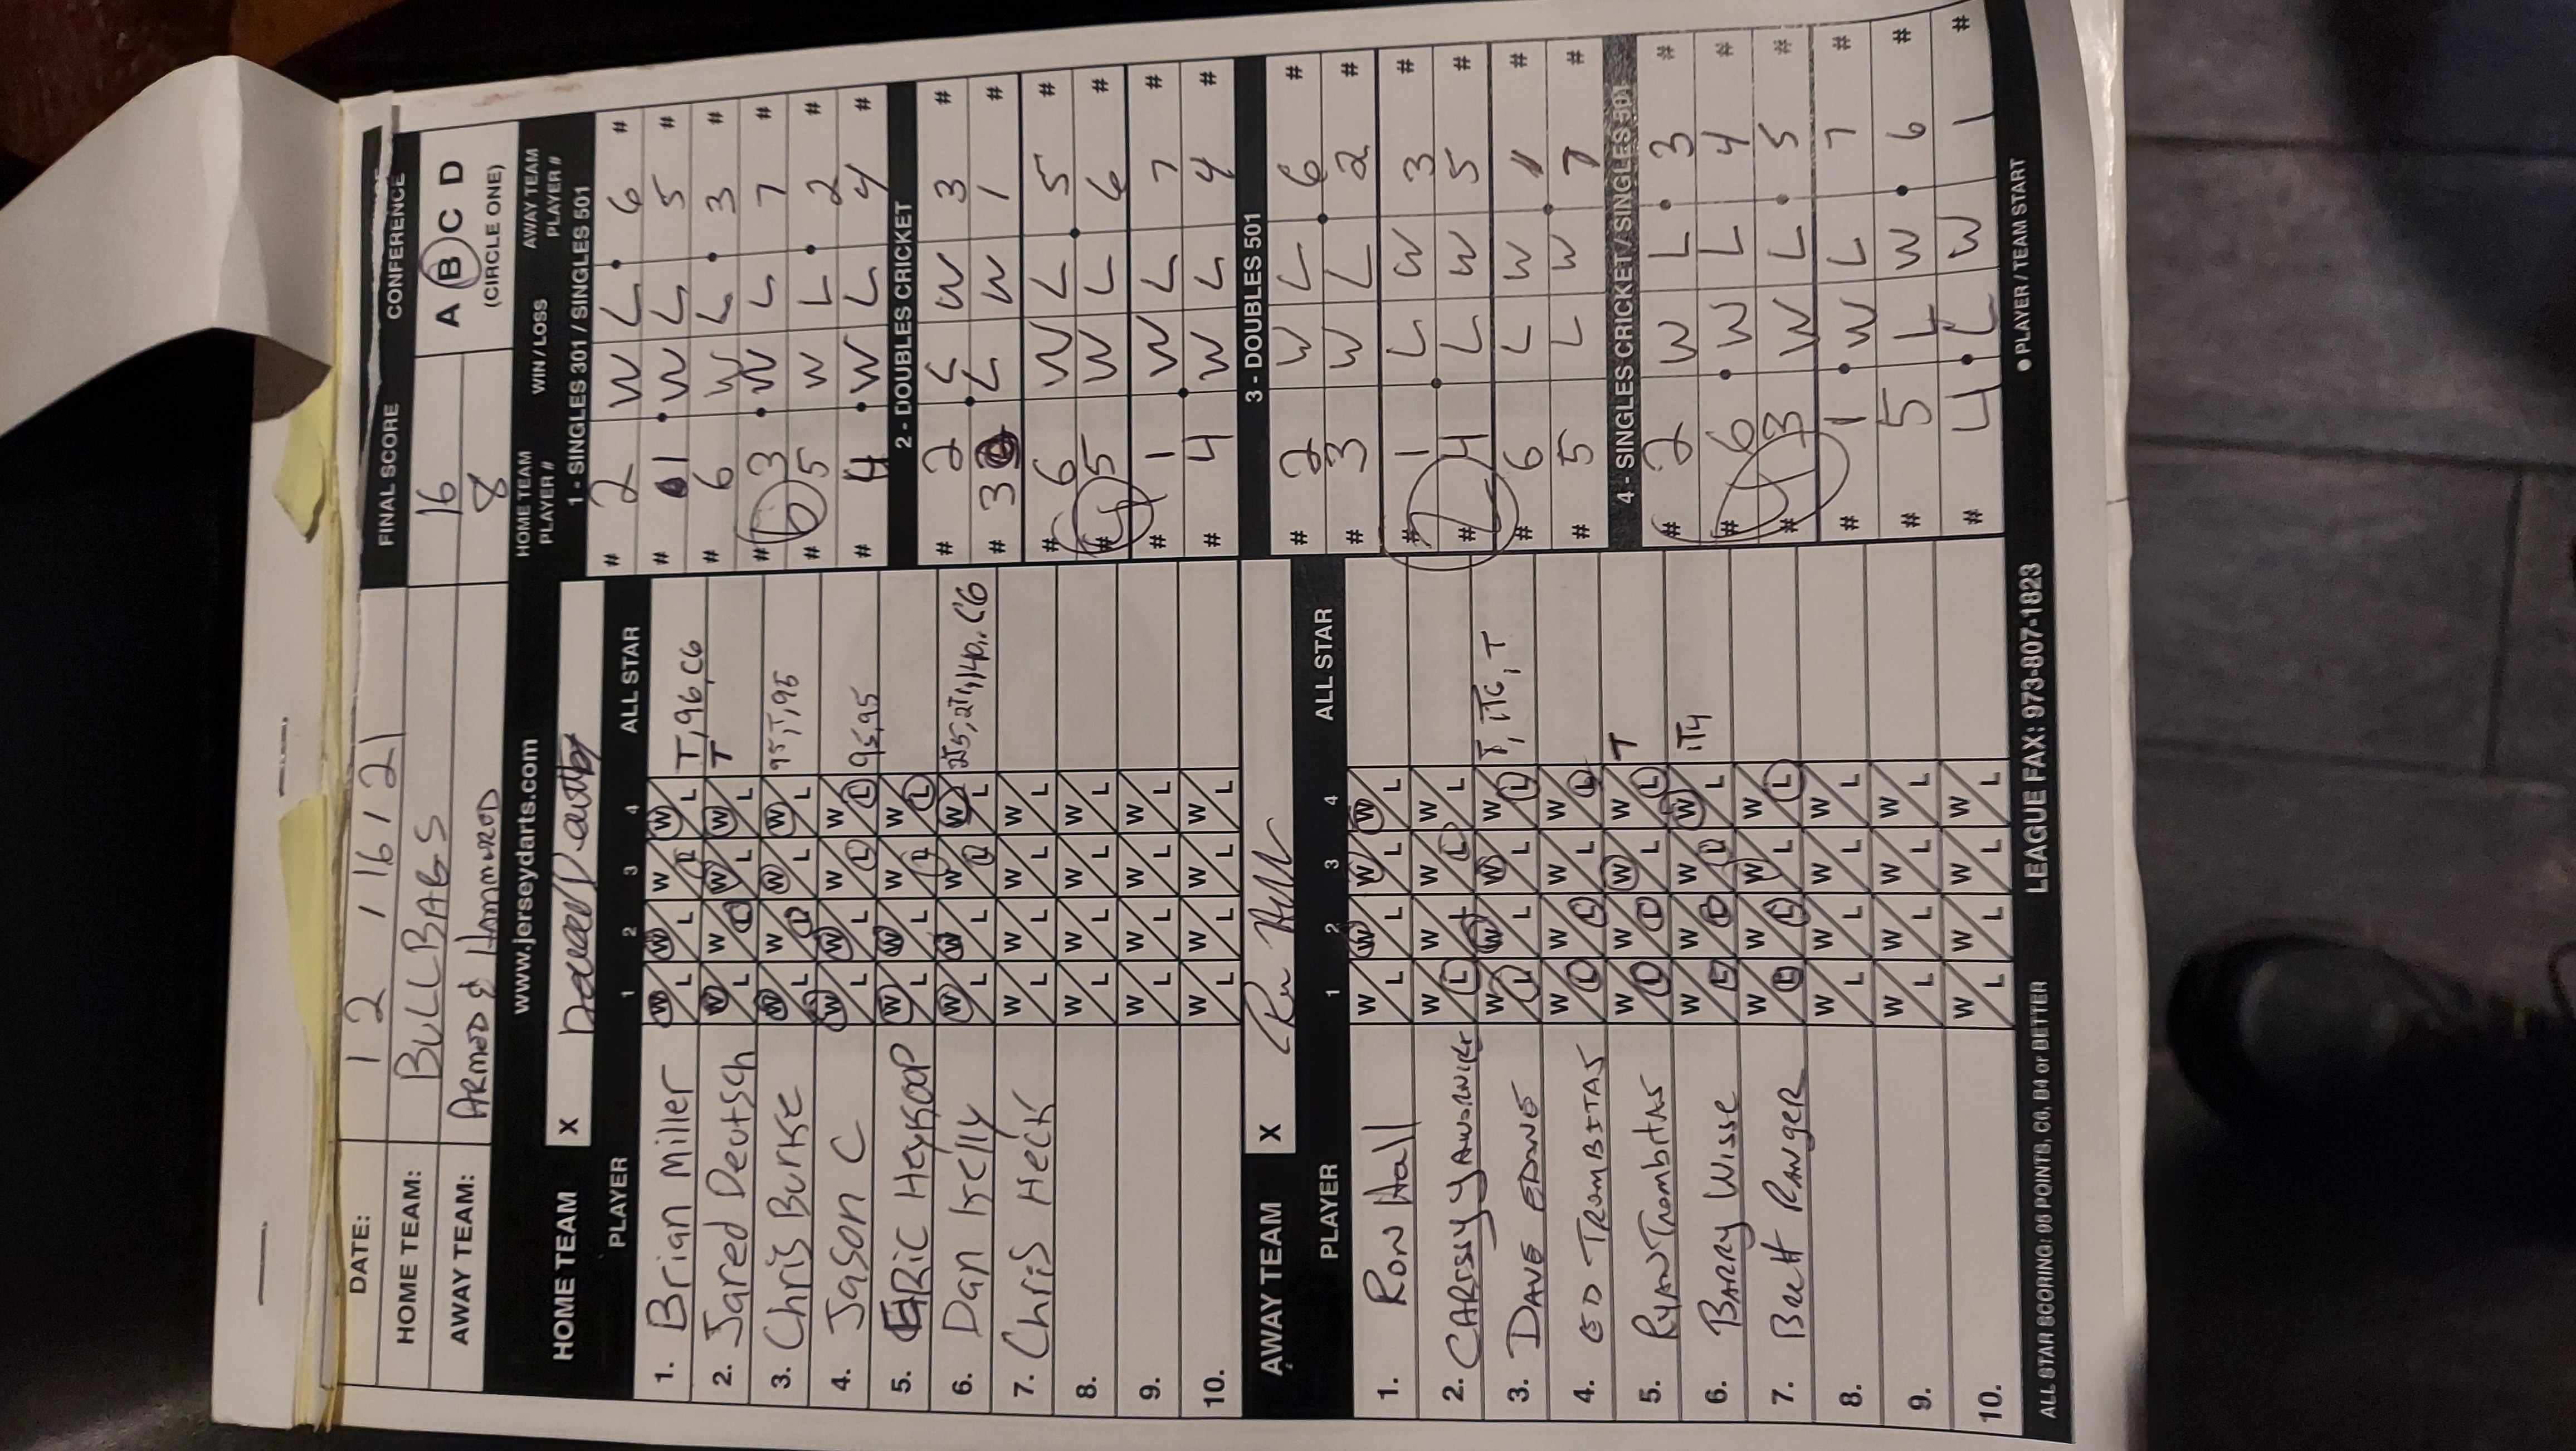 DATE: 12 / 16 / 21 FINAL SCORE CONFERENCE
HOME TEAM: BULLBAGS 16 A B C D
AWAY TEAM: 8 (CIRCLE ONE)
www.jerseydarts.com
HOME TEAM X
PLAYER 1 2 3 4 ALL STAR
1. Brian Miller W/L W/L W/L W/L T, 96, C6
2. Jared Deutsch W/L W/L W/L W/L T
3. Chris Burke W/L W/L W/L W/L 95, T, 95
4. Jason C W/L W/L W/L W/L 95, 95
5. Eric Heykoop W/L W/L W/L W/L
6. Dan Kelly W/L W/L W/L W/L
7. Chris Heck W/L W/L W/L W/L
8. W/L W/L W/L W/L
9. W/L W/L W/L W/L
10. W/L W/L W/L W/L
AWAY TEAM X
PLAYER 1 2 3 4 ALL STAR
1. Ron Hall W/L W/L W/L W/L
2. W/L W/L W/L W/L
3. DAVE W/L W/L W/L W/L
4. ED TROMBITAS W/L W/L W/L W/L
5. RYAN Trombitas W/L W/L W/L W/L T
6. BARRY WISSE W/L W/L W/L W/L
7. Brett RANGER W/L W/L W/L W/L
8. W/L W/L W/L W/L
9. W/L W/L W/L W/L
10. W/L W/L W/L W/L
HOME TEAM PLAYER # WIN / LOSS AWAY TEAM PLAYER #
1 - SINGLES 301 / SINGLES 501
# 2 W L 6 #
# 1 W L 5 #
# 6 W L 3 #
# 3 W L 7 #
6
# 5 W L 2 #
# 4 W L 4 #
2 - DOUBLES CRICKET
# 2 L W 3 #
# 3 L W 1 #
# 6 W L 5 #
# 5 W L 6 #
4
# 1 W L 7 #
# 4 W L 4 #
3 - DOUBLES 501
# 2 W L 6 #
# 3 W L 2 #
# 1 L W 3 #
2
# 4 L W 5 #
# 6 L W 1 #
# 5 L W 7 #
4 - SINGLES CRICKET / SINGLES 501
# 2 W L 3 #
# 6 W L 4 #
4
# 3 W L 5 #
# 1 W L 7 #
# 5 L W 6 #
# 4 L W 1 #
ALL STAR SCORING: 95 POINTS, C6, B4 or BETTER LEAGUE FAX: 973-807-1823 ● PLAYER / TEAM START